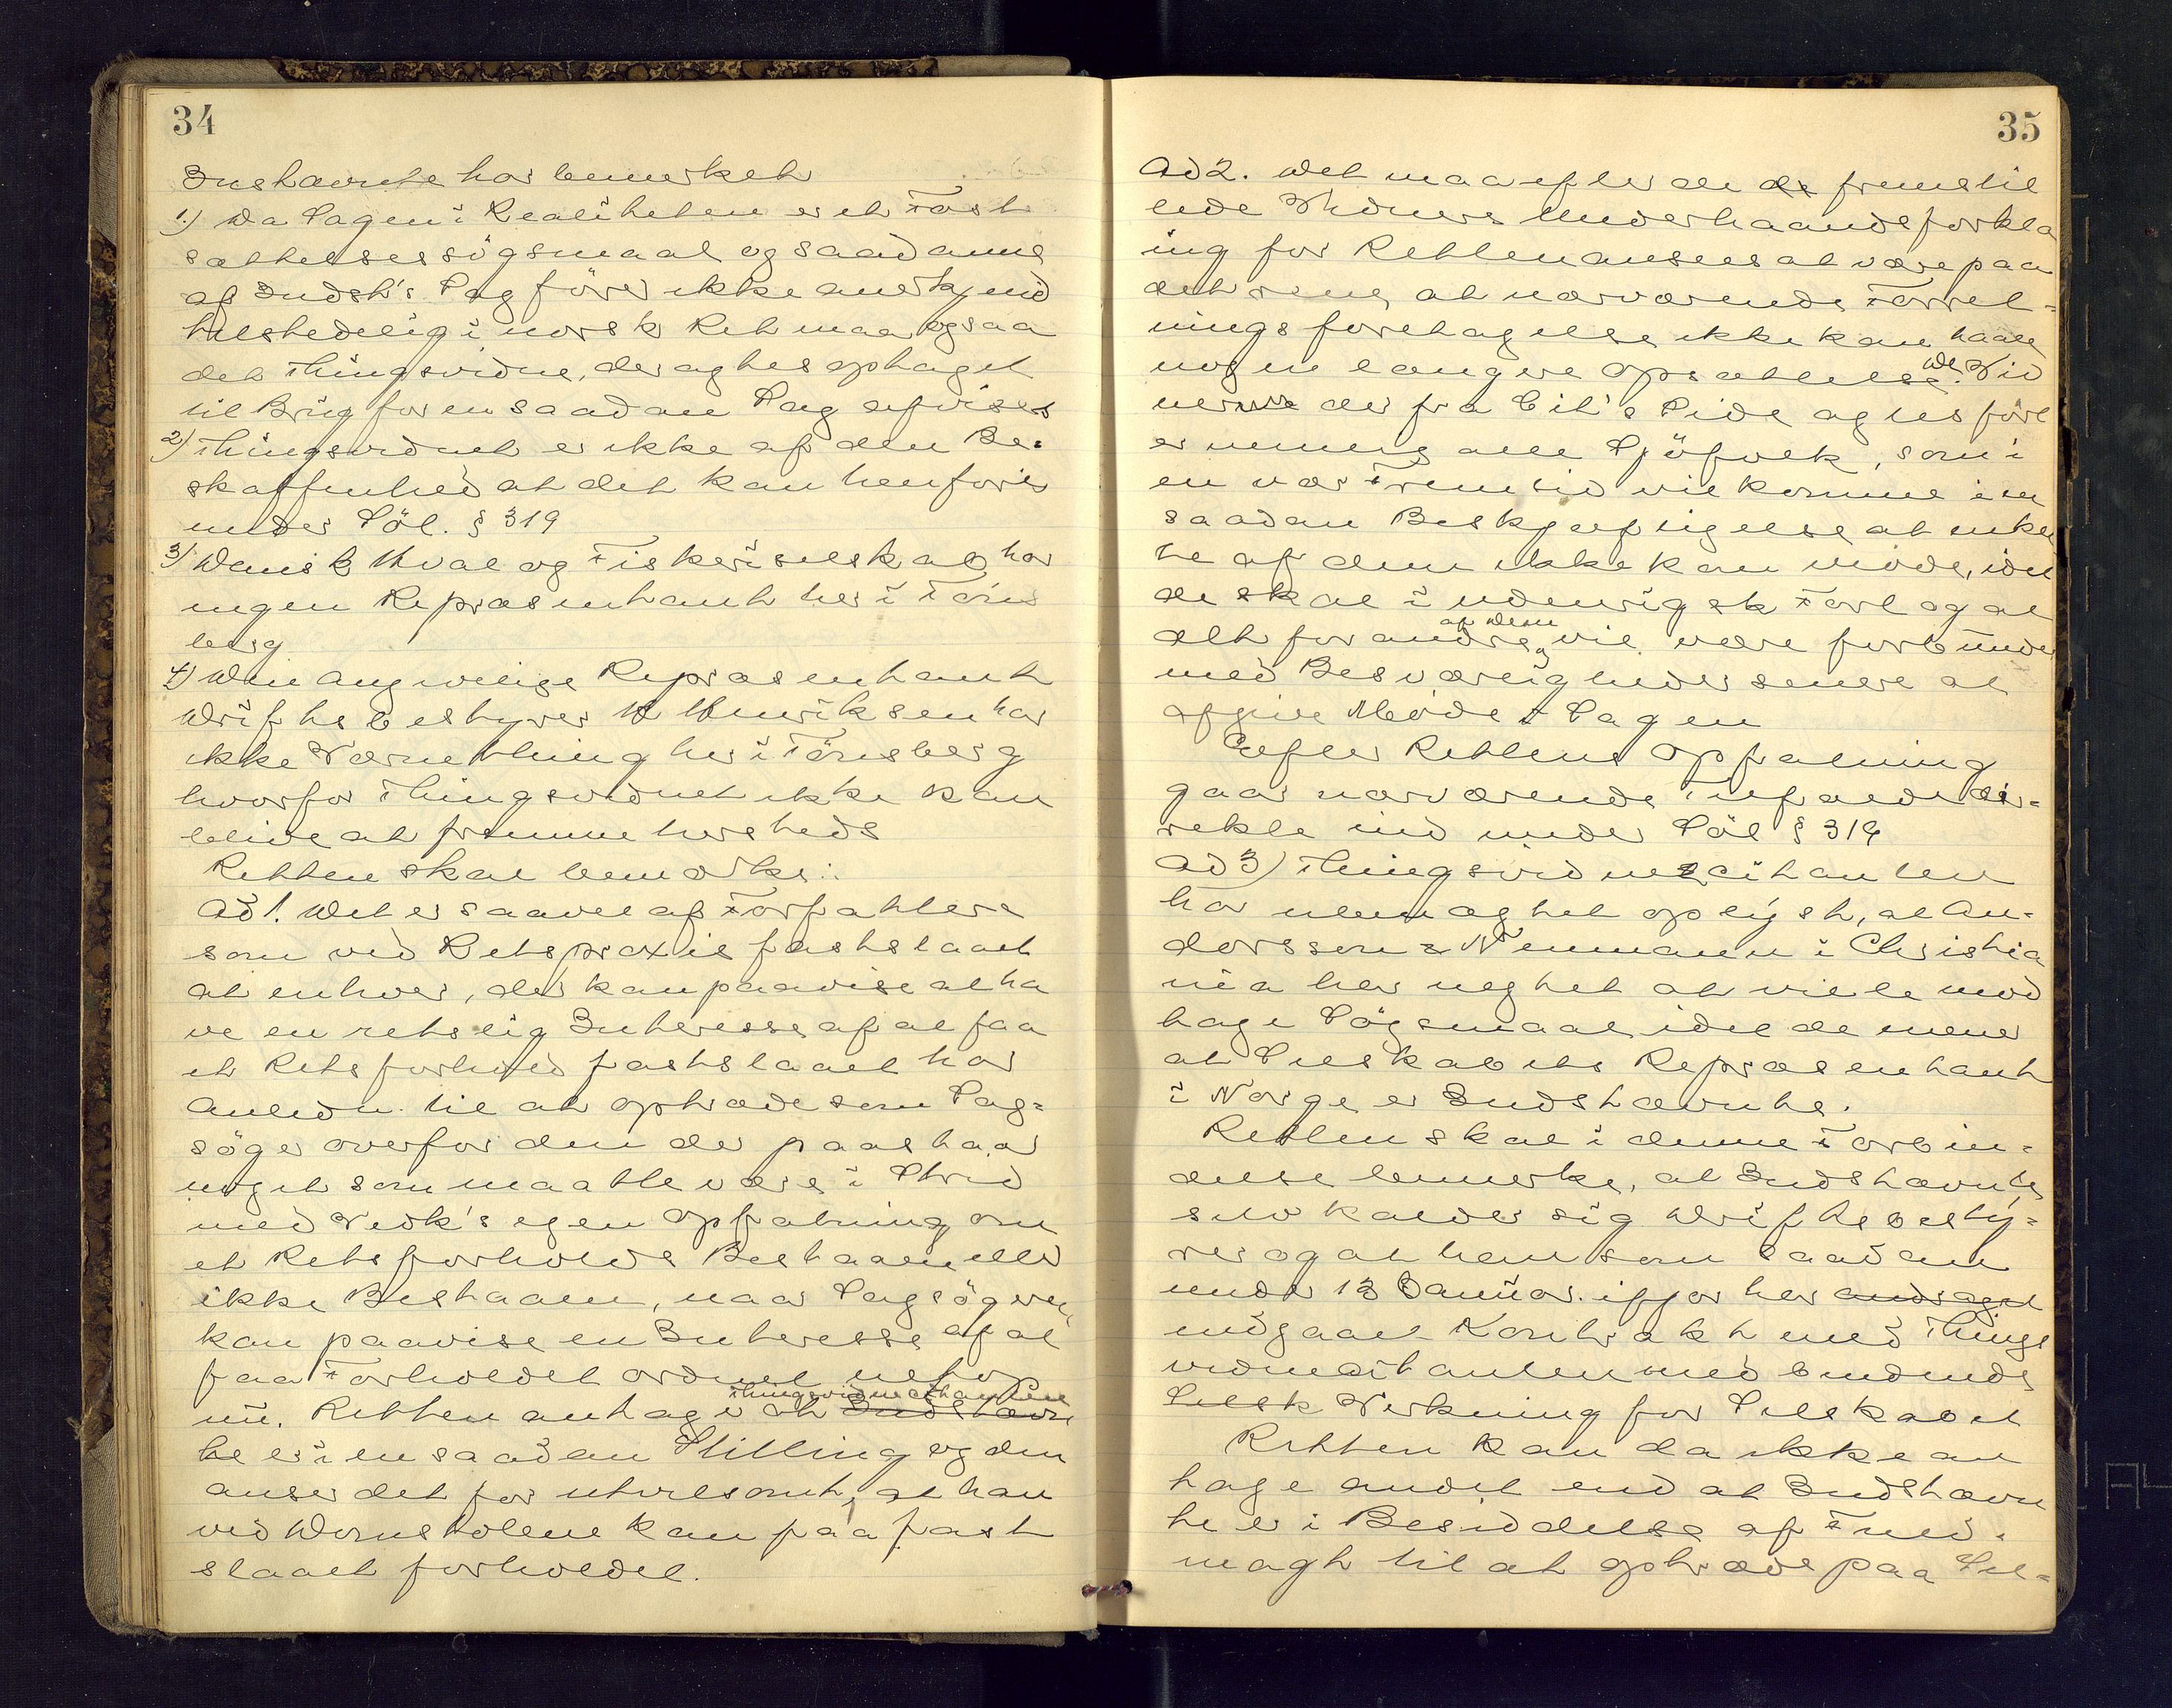 34
Instævnte har bemerket
1.) Da Sagen i Realiteten er et Fast
sættelsessögsmaal og saadanne
af Indst's Sagfører ikke anerkjend
tilstedelig i norsk Ret maa ogsaa
det Thingsvidne, der agtes optaget
til Brug for en saadan Sag afvises
2) Thingsvidnet er ikke af den Be-
skaffenhed at det kan henføres
under Söl. § 319
3) Dansk Hval og Fiskeriselskab har
ingen Repræsentant her i Töns
berg
4) Den angivelige Repræsentant
Driftsbestyrer N Henriksen har
ikke Værnething her i Tönsberg
hvorfor Thingsvidnet ikke kan
blive at fremme hersteds
Retten skal bemærke:
Ad 1. Det er saavel af Forfattere
som ved Retspraxis fastslaaet
at enhver, der kan paavise at ha
ve en retslig Interesse af at faa
et Retsforhold fastslaaet har
Anledn. til at optræde som Sag-
söger overfor den der paastaar
noget som maatte være i Strid
med Vedk's egen Opfatning om
et Retsforholds Bestaaen eller
ikke Bestaaen, naar Sagsögeren
kan paavise en Interesse af at
faa Forholdet ordnet netop
nu. Retten antager at Indstævn Thingsvidnecitanten
te er i en saadan Stilling og den
anser det for utvilsomt, at han
ved Domstolene kan faa fast
slaaet forholdet.
35
Ad 2. Det maa efter de de fremstil
lede Vidners Underhaandsforkla
ing for Retten ansees at være paa
det rene, at nærværende Forret-
nings foretagelse ikke kan taale
nogen længere Opsættelse. De Vid
ner der fra Cit's Side agtes fört
er nemlig alle Sjöfolk, som i
en nær Fremtid vil komme i en
saadan Beskjæftigelse at enkel
te af dem ikke kan möde, idet
de skal i udenrigsk Fart og at
det for andre af dem vil være forbunden
med Besværligheder senere at
afgive Möde i Sagen
Efter Rettens Opfatning
gaar nærværende Tilfælde di-
rekte ind under Söl § 319
Ad 3) Thingsvidnecitanten
har ubenægtet oplyst, at An-
dorsson & Neumann i Christia
nia har negtet at ville mod
tage Sögsmaal idet de mener
at Selskabets Repræsentant
i Norge er Indstævnte.
Retten skal i denne Forbin-
delse bemerke, at Indstævnte
selv kalder sig Driftsbesty-
rer og at han som saadan
under 13 Januar ifjor har andraget
indgaaet Kontrakt med Things
vidnecitanten med bindende
Selsk Virkning for Selskabet
Retten kan da ikke an
tage andet end at Indstævn
te er i Besiddelse af Fuld-
magt til at optræde paa Sel-